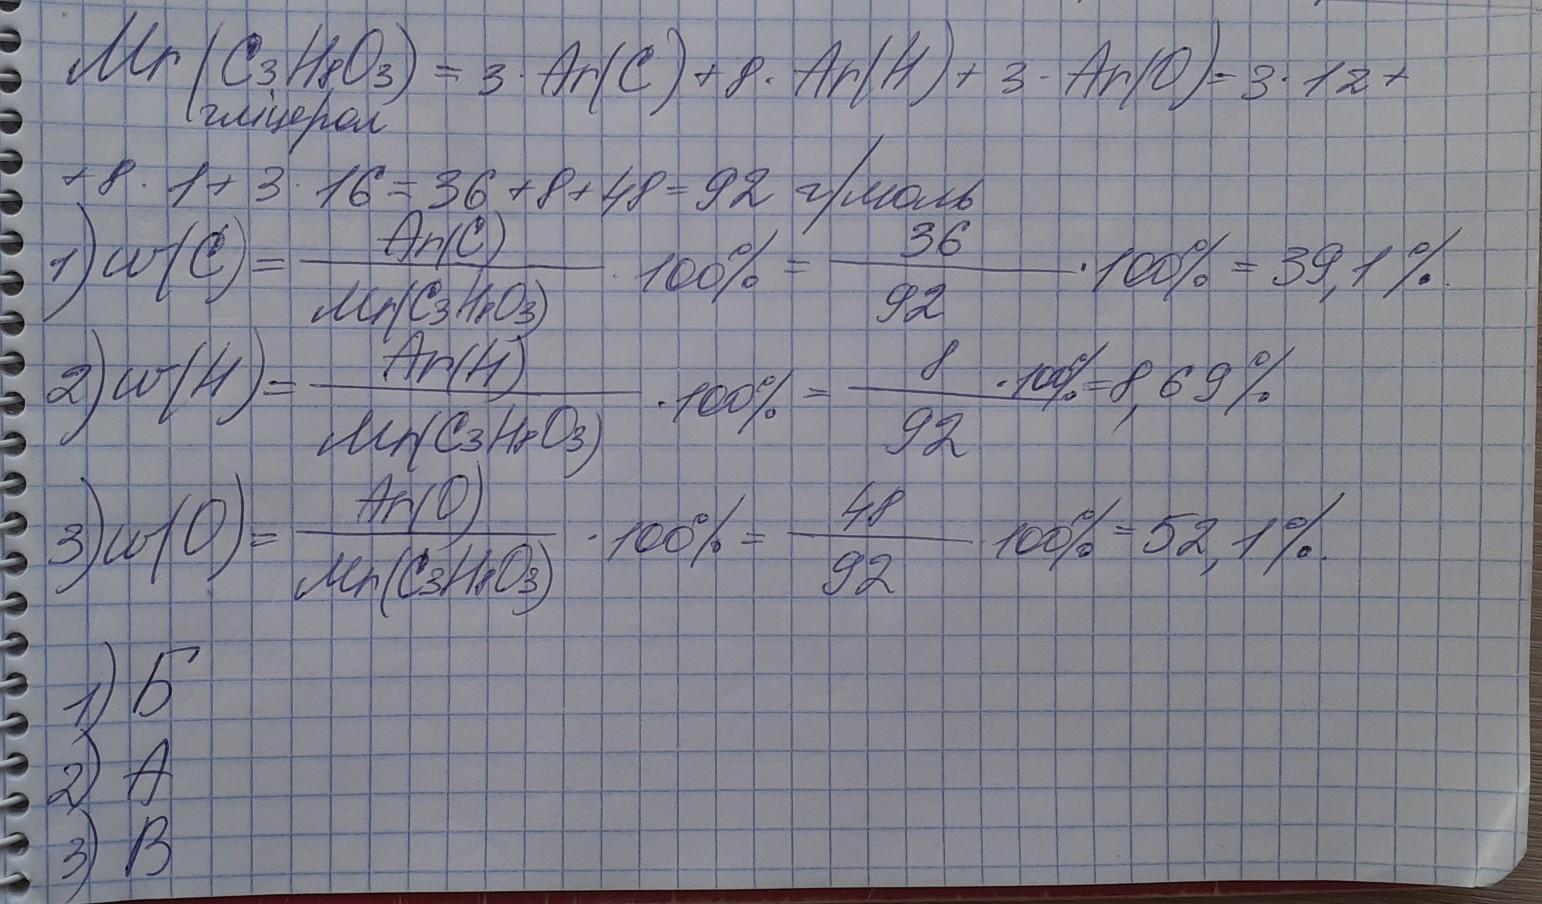 Mr(C3H8O3) = 3 · Ar(C) + 8 · Ar(H) + 3 · Ar(O) = 3 · 12 +
гліцерол
+ 8 · 1 + 3 · 16 = 36 + 8 + 48 = 92 г/моль
1) w(C) = Ar(C) / Mr(C3H8O3) · 100% = 36 / 92 · 100% = 39,1%.
2) w(H) = Ar(H) / Mr(C3H8O3) · 100% = 8 / 92 · 100% = 8,69%
3) w(O) = Ar(O) / Mr(C3H8O3) · 100% = 48 / 92 · 100% = 52,1%.
1) Б
2) А
3) В